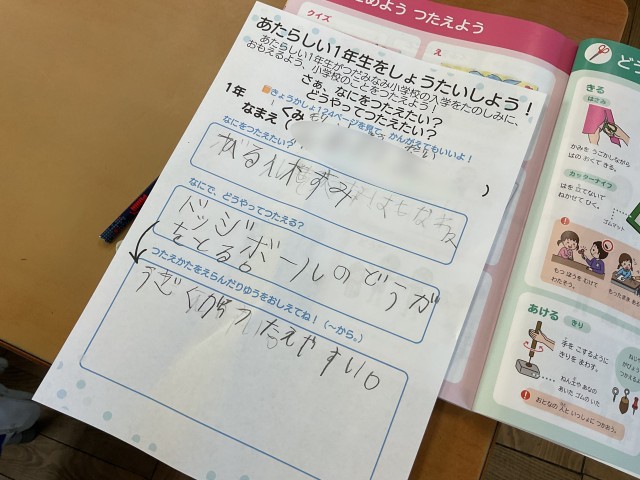 あたらしい1年生をしょうたいしよう！
あたらしい1年生がつだみなみ小学校の入学をたのしみに、
おもえるよう、小学校のことをつたえよう！
さぁ、なにをつたえたい？
どうやってつたえたい？
きょうかしょ124ページを見て、かんがえてもいいよ！
1年 くみ
なまえ（ ）
なにをつたえたい？
なにで、どうやってつたえる？
ドッジボールのどうが
をとる。
つたえかたをえらんだりゆうをおしえてね！（〜から。）
うごくからつたえやすい。
クイズ
え
つたえよう
きる
はさみ
かみを うごかしながら
はの おくで きる。
カッターナイフ
はを 立てないで
ねかせて ひく。
ゴムマット
もつ ほうを むけて
わたそう。
あける
きり
手を こするように
きりを まわす。
ねん土や あなの
あいた ゴムの いた
おとなの 人と いっしょに つかおう。